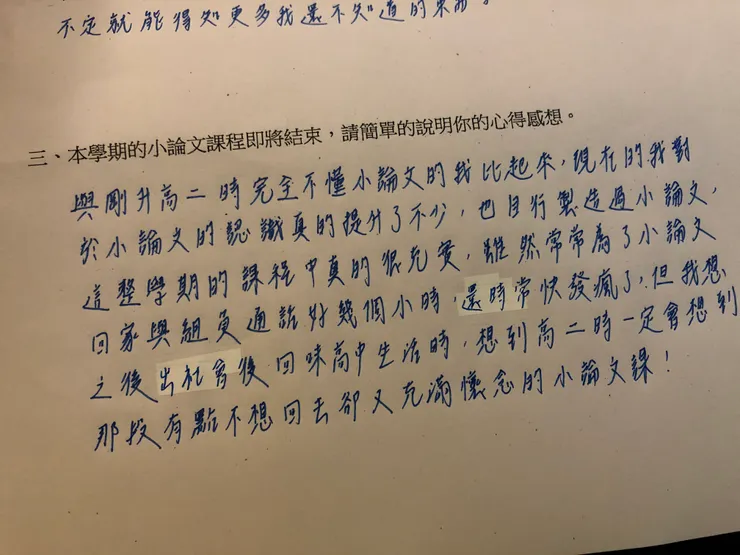 不定就能得知更多我還不知道的東西。
三、本學期的小論文課程即將結束，請簡單的說明你的心得感想。
與剛升高二時完全不懂小論文的我比起來，現在的我對
於小論文的認識真的提升了不少，也自行製造過小論文，
這整學期的課程中真的很充實，雖然常常為了小論文
回家與組員通話好幾個小時，還時常快發瘋了，但我想
之後出社會後回味高中生活時，想到高二時一定會想到
那段有點不想回去卻又充滿懷念的小論文課！